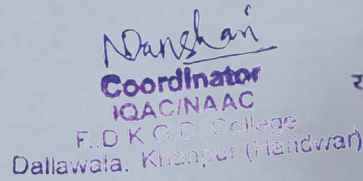 Coordinator
IQAC/NAAC
F..D K G.D. College
Dallawala, Khanpur (Haridwar)